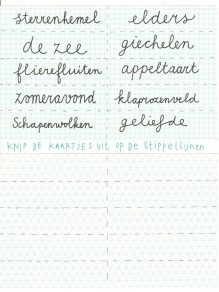 sterrenhemel elders
de zee giechelen
flierefluiten appeltaart
zomeravond klaprozenveld
Schapenwolken geliefde
KNIP DE KAARTJES uit op de Stippellijnen